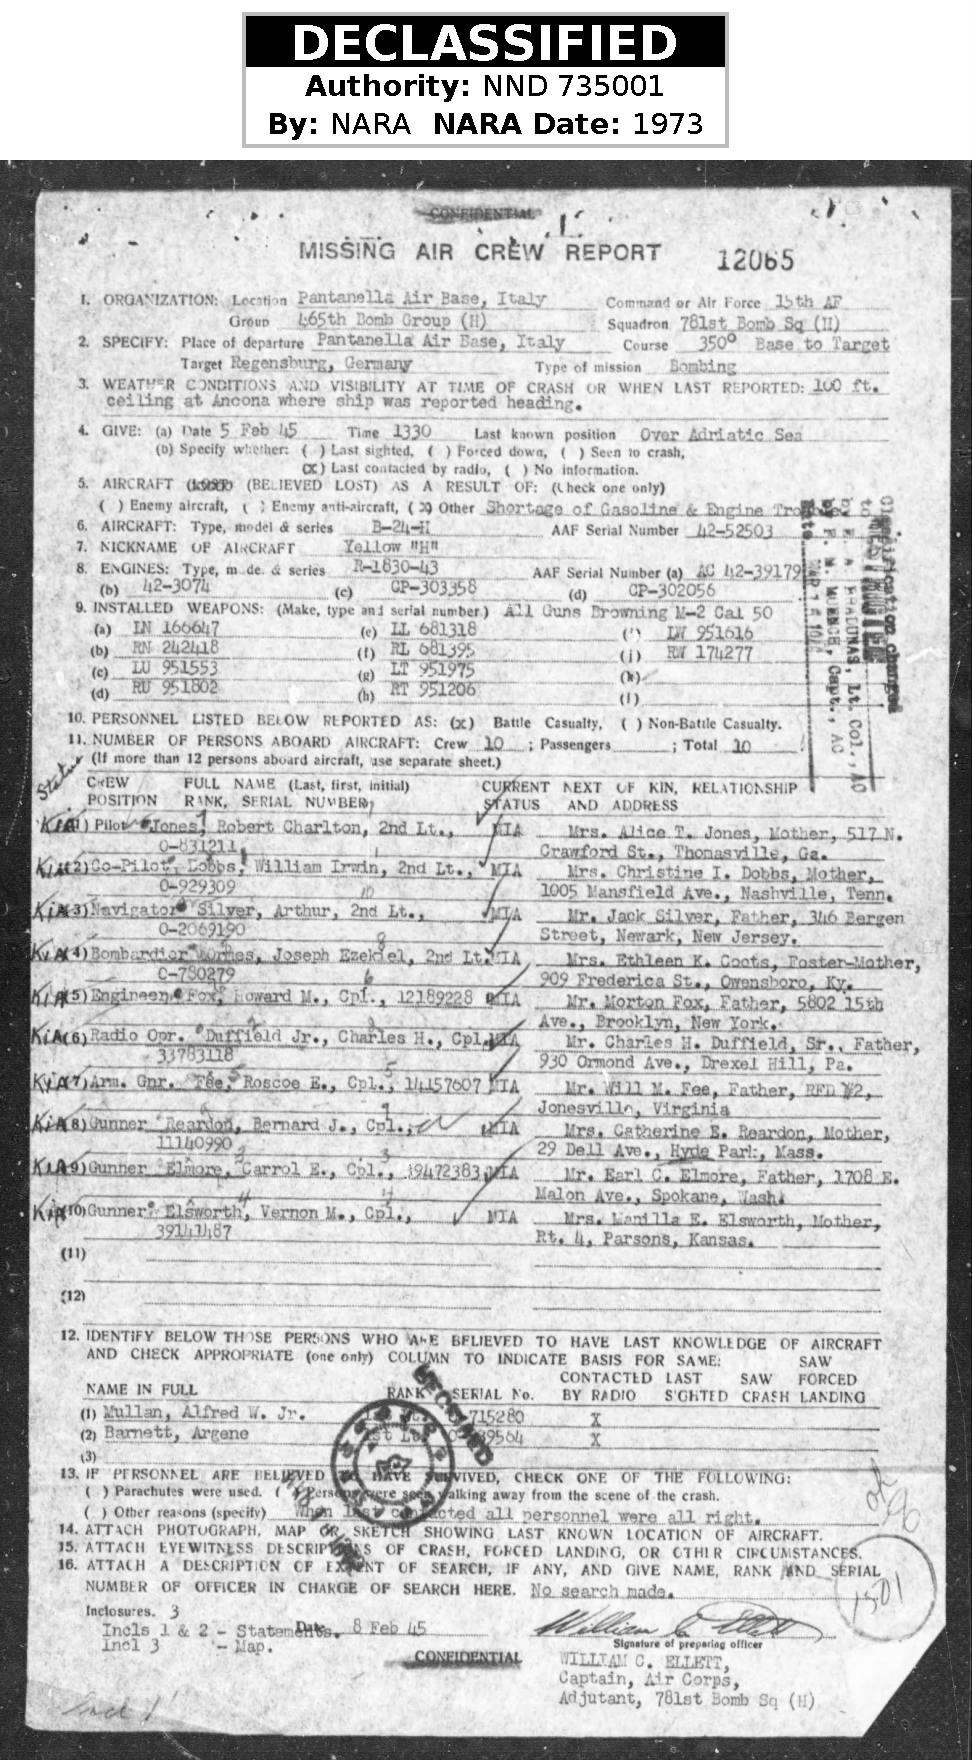 DECLASSIFIED
Authority: NND 735001
By: NARA NARA Date: 1973
CONFIDENTIAL
MISSING AIR CREW REPORT 12065
1. ORGANIZATION: Location Pantanella Air Base, Italy Command or Air Force 15th AF
Group 465th Bomb Group (H) Squadron 781st Bomb Sq (H)
2. SPECIFY: Place of departure Pantanella Air Base, Italy Course 350° Base to Target
Target Regensburg, Germany Type of mission Bombing
3. WEATHER CONDITIONS AND VISIBILITY AT TIME OF CRASH OR WHEN LAST REPORTED: 100 ft.
ceiling at Ancona where ship was reported heading.
4. GIVE: (a) Date 5 Feb 45 Time 1330 Last known position Over Adriatic Sea
(b) Specify whether: ( ) Last sighted, ( ) Forced down, ( ) Seen to crash,
(X) Last contacted by radio, ( ) No information.
5. AIRCRAFT (LOST) (BELIEVED LOST) AS A RESULT OF: (Check one only)
( ) Enemy aircraft, ( ) Enemy anti-aircraft, (X) Other Shortage of Gasoline & Engine Trouble
6. AIRCRAFT: Type, model & series B-24-H AAF Serial Number 42-52503
7. NICKNAME OF AIRCRAFT Yellow "H"
8. ENGINES: Type, model & series R-1830-43 AAF Serial Number (a) AC 42-39179
(b) 42-3074 (c) CP-303358 (d) CP-302056
9. INSTALLED WEAPONS: (Make, type and serial number) All Guns Browning M-2 Cal 50
(a) LN 166647 (e) LL 681318 (i) LW 951616
(b) RN 242418 (f) RL 681395 (j) RW 174277
(c) LU 951553 (g) LT 951975 (k)
(d) RU 951802 (h) RT 951206 (l)
10. PERSONNEL LISTED BELOW REPORTED AS: (x) Battle Casualty, ( ) Non-Battle Casualty.
11. NUMBER OF PERSONS ABOARD AIRCRAFT: Crew 10 ; Passengers ; Total 10
(If more than 12 persons aboard aircraft, use separate sheet.)
Status
CREW FULL NAME (Last, first, initial) CURRENT NEXT OF KIN, RELATIONSHIP
POSITION RANK, SERIAL NUMBER STATUS AND ADDRESS
KIA (1) Pilot Jones, Robert Charlton, 2nd Lt., MIA Mrs. Alice T. Jones, Mother, 517 N.
O-831211 Crawford St., Thomasville, Ga.
KIA (2) Co-Pilot Dobbs, William Irwin, 2nd Lt., MIA Mrs. Christine I. Dobbs, Mother,
O-929309 1005 Mansfield Ave., Nashville, Tenn.
KIA (3) Navigator Silver, Arthur, 2nd Lt., MIA Mr. Jack Silver, Father, 346 Bergen
O-2069190 Street, Newark, New Jersey.
KIA (4) Bombardier Joseph Ezekiel, 2nd Lt. MIA Mrs. Ethleen K. Coots, Foster-Mother,
O-780279 909 Frederica St., Owensboro, Ky.
KIA (5) Engineer Fox, Howard M., Cpl., 12189228 MIA Mr. Morton Fox, Father, 5802 15th
Ave., Brooklyn, New York.
KIA (6) Radio Opr. Duffield Jr., Charles H., Cpl. MIA Mr. Charles H. Duffield, Sr., Father,
33783118 930 Ormond Ave., Drexel Hill, Pa.
KIA (7) Arm. Gnr. Fee, Roscoe E., Cpl., 14157607 MIA Mr. Will M. Fee, Father, RFD #2,
Jonesville, Virginia
KIA (8) Gunner Reardon, Bernard J., Cpl., MIA Mrs. Catherine E. Reardon, Mother,
11140990 29 Dell Ave., Hyde Park, Mass.
KIA (9) Gunner Elmore, Carrol E., Cpl., 19472383 MIA Mr. Earl C. Elmore, Father, 1708 E.
Malon Ave., Spokane, Wash.
KIA (10) Gunner Elsworth, Vernon M., Cpl., MIA Mrs. Manilla E. Elsworth, Mother,
39141487 Rt. 4, Parsons, Kansas.
(11)
(12)
12. IDENTIFY BELOW THOSE PERSONS WHO ARE BELIEVED TO HAVE LAST KNOWLEDGE OF AIRCRAFT
AND CHECK APPROPRIATE (one only) COLUMN TO INDICATE BASIS FOR SAME: SAW
CONTACTED LAST SAW FORCED
NAME IN FULL RANK SERIAL No. BY RADIO SIGHTED CRASH LANDING
(1) Mullan, Alfred W. Jr. 715280 X
(2) Barnett, Argene 1st Lt. X
(3)
13. IF PERSONNEL ARE BELIEVED TO HAVE SURVIVED, CHECK ONE OF THE FOLLOWING:
( ) Parachutes were used. ( ) Persons were seen walking away from the scene of the crash.
( ) Other reasons (specify) When last contacted all personnel were all right.
14. ATTACH PHOTOGRAPH, MAP OR SKETCH SHOWING LAST KNOWN LOCATION OF AIRCRAFT.
15. ATTACH EYEWITNESS DESCRIPTIONS OF CRASH, FORCED LANDING, OR OTHER CIRCUMSTANCES.
16. ATTACH A DESCRIPTION OF EXTENT OF SEARCH, IF ANY, AND GIVE NAME, RANK AND SERIAL
NUMBER OF OFFICER IN CHARGE OF SEARCH HERE. No search made.
1501
Inclosures. 3
Incls 1 & 2 - Statements. Date 8 Feb 45 William C. Ellett
Incl 3 - Map. Signature of preparing officer
CONFIDENTIAL WILLIAM C. ELLETT,
Captain, Air Corps,
Adjutant, 781st Bomb Sq (H)
Incl 1
Classification changed
F. M. MUENCH, Capt., AC